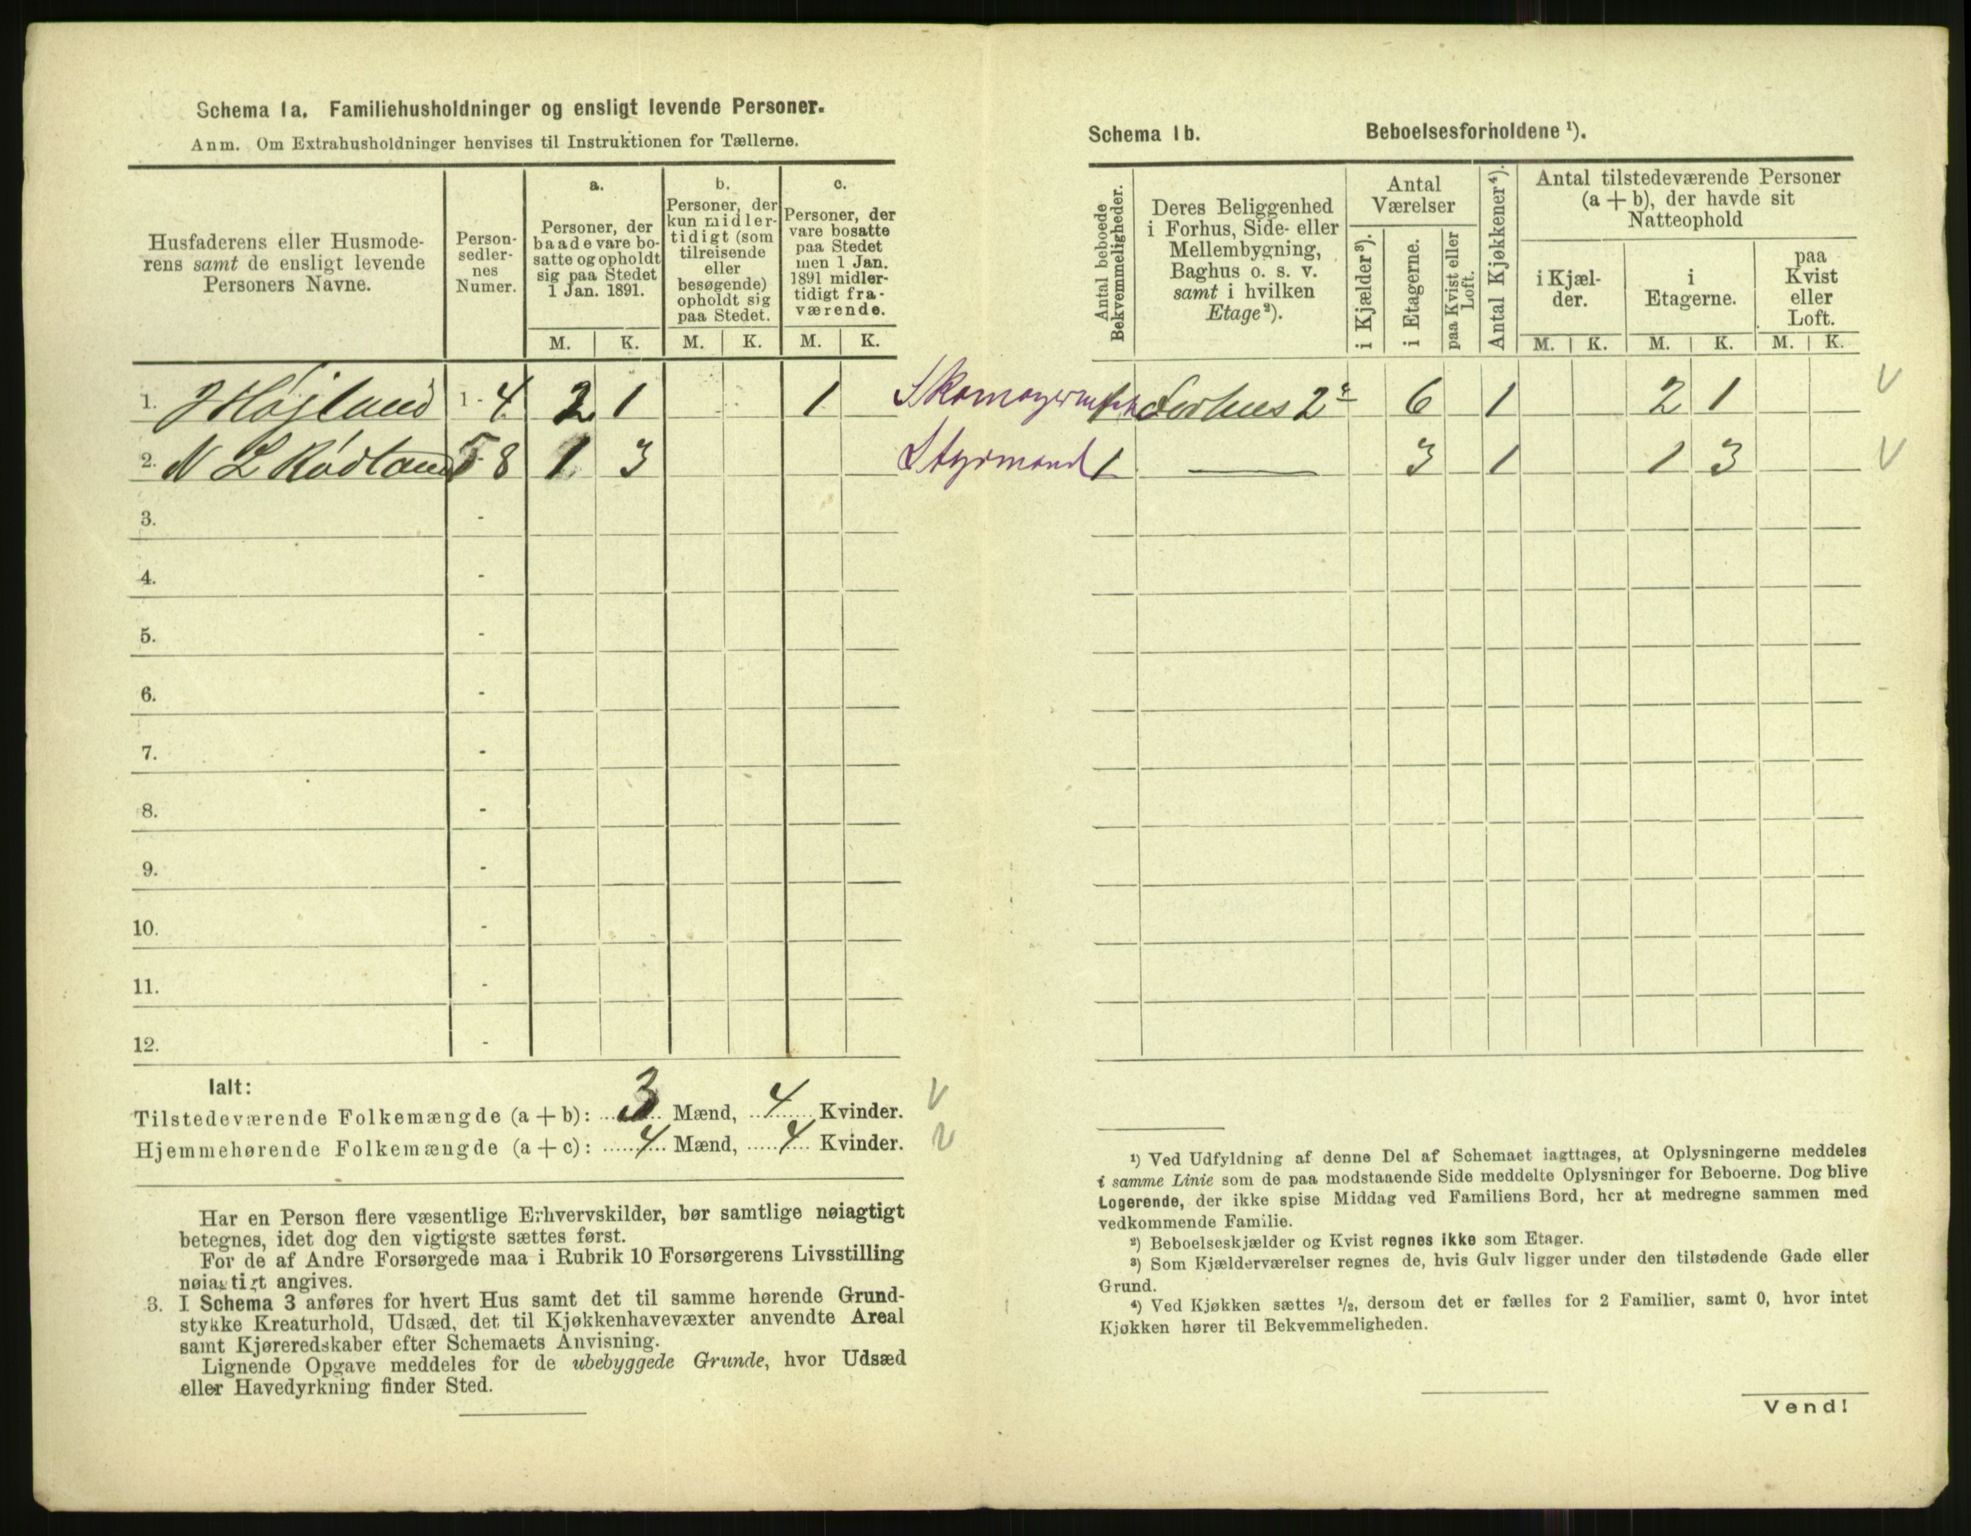 Schema 1a. Familiehusholdninger og ensligt levende Personer.
Anm. Om Extrahusholdninger henvises til Instruktionen for Tællerne.
Husfaderens eller Husmode-
rens samt de ensligt levende
Personers Navne.
Person-
sedler-
nes
Numer.
a.
Personer, der
baade vare bo-
satte og opholdt
sig paa Stedet
1 Jan. 1891.
b.
Personer, der
kun midler-
tidigt (som
tilreisende
eller
besøgende)
opholdt sig
paa Stedet.
c.
Personer, der
vare bosatte
paa Stedet
men 1 Jan.
1891 midler-
tidigt fra-
værende.
M. K. M. K. M. K.
1. J Højland 1-4 2 1 1
2. N L Rødland 5 8 1 3
3. -
4. -
5. -
6. -
7. -
8. -
9. -
10. -
11. -
12. -
Ialt:
Tilstedeværende Folkemængde (a + b): 3 Mænd, 4 Kvinder.
Hjemmehørende Folkemængde (a + c): 4 Mænd, 4 Kvinder.
Har en Person flere væsentlige Erhvervskilder, bør samtlige nøiagtigt
betegnes, idet dog den vigtigste sættes først.
For de af Andre Forsørgede maa i Rubrik 10 Forsørgerens Livsstilling
nøiagtigt angives.
3. I Schema 3 anføres for hvert Hus samt det til samme hørende Grund-
stykke Kreaturhold, Udsæd, det til Kjøkkenhavevæxter anvendte Areal
samt Kjøreredskaber efter Schemaets Anvisning.
Lignende Opgave meddeles for de ubebyggede Grunde, hvor Udsæd
eller Havedyrkning finder Sted.
Schema 1b. Beboelsesforholdene ¹).
Antal beboede
Bekvemmeligheder.
Deres Beliggenhed
i Forhus, Side- eller
Mellembygning,
Baghus o. s. v.
samt i hvilken
Etage²).
Antal
Værelser
i Kjælder³).
i Etagerne.
paa Kvist eller
Loft.
Antal Kjøkkener⁴).
Antal tilstedeværende Personer
(a + b), der havde sit
Natteophold
i Kjæl-
der.
i
Etagerne.
paa
Kvist
eller
Loft.
M. K. M. K. M. K.
1 Forhus 2 6 1 2 1
Styrmand 1 — 3 1 1 3
¹) Ved Udfyldning af denne Del af Schemaet iagttages, at Oplysningerne meddeles
i samme Linie som de paa modstaaende Side meddelte Oplysninger for Beboerne. Dog blive
Logerende, der ikke spise Middag ved Familiens Bord, her at medregne sammen med
vedkommende Familie.
²) Beboelseskjælder og Kvist regnes ikke som Etager.
³) Som Kjælderværelser regnes de, hvis Gulv ligger under den tilstødende Gade eller
Grund.
⁴) Ved Kjøkken sættes ½, dersom det er fælles for 2 Familier, samt 0, hvor intet
Kjøkken hører til Bekvemmeligheden.
Vend!